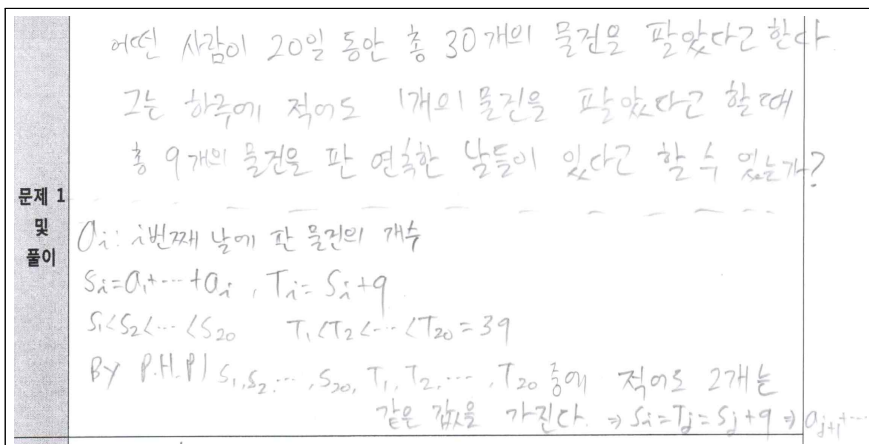 어떤 사람이 20일 동안 총 30개의 물건을 팔았다고 한다
그는 하루에 적어도 1개의 물건을 팔았다고 할 때
총 9개의 물건을 판 연속한 날들이 있다고 할 수 있는가?
문제 1
및
풀이
aᵢ: i번째 날에 판 물건의 개수
Sᵢ=a₁+⋯+aᵢ, Tᵢ=Sᵢ+9
S₁<S₂<⋯<S₂₀ T₁<T₂<⋯<T₂₀=39
By P.H.P S₁, S₂, ⋯, S₂₀, T₁, T₂, ⋯, T₂₀ 중에 적어도 2개는
같은 값을 가진다. ⇒ Sᵢ=Tⱼ=Sⱼ+9 ⇒ aⱼ₊₁+⋯